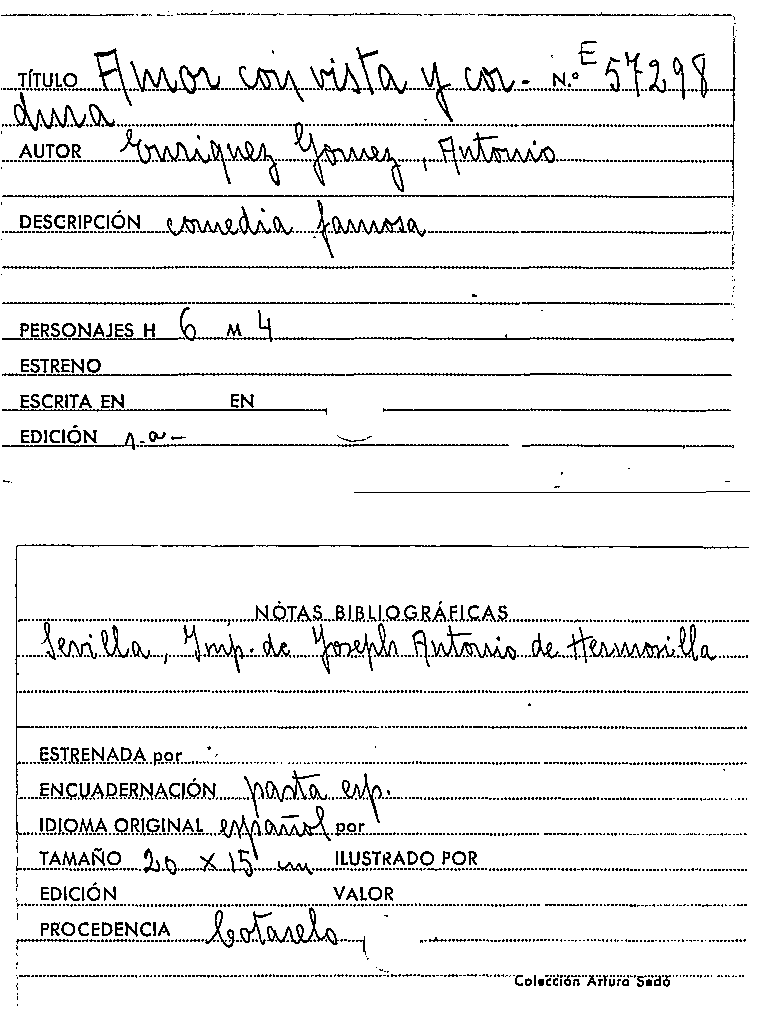 TÍTULO Amor con vista y cor- N.º E 57298
dura
AUTOR Enriquez Gomez, Antonio
DESCRIPCIÓN comedia famosa
PERSONAJES H 6 M 4
ESTRENO
ESCRITA EN EN
EDICIÓN 1.a-
NOTAS BIBLIOGRÁFICAS
Sevilla, Imp. de Joseph Antonio de Hermosilla
ESTRENADA por
ENCUADERNACIÓN pasta esp.
IDIOMA ORIGINAL español por
TAMAÑO 20 x 15 cm ILUSTRADO POR
EDICIÓN VALOR
PROCEDENCIA Cotarelo
Colección Arturo Sedó